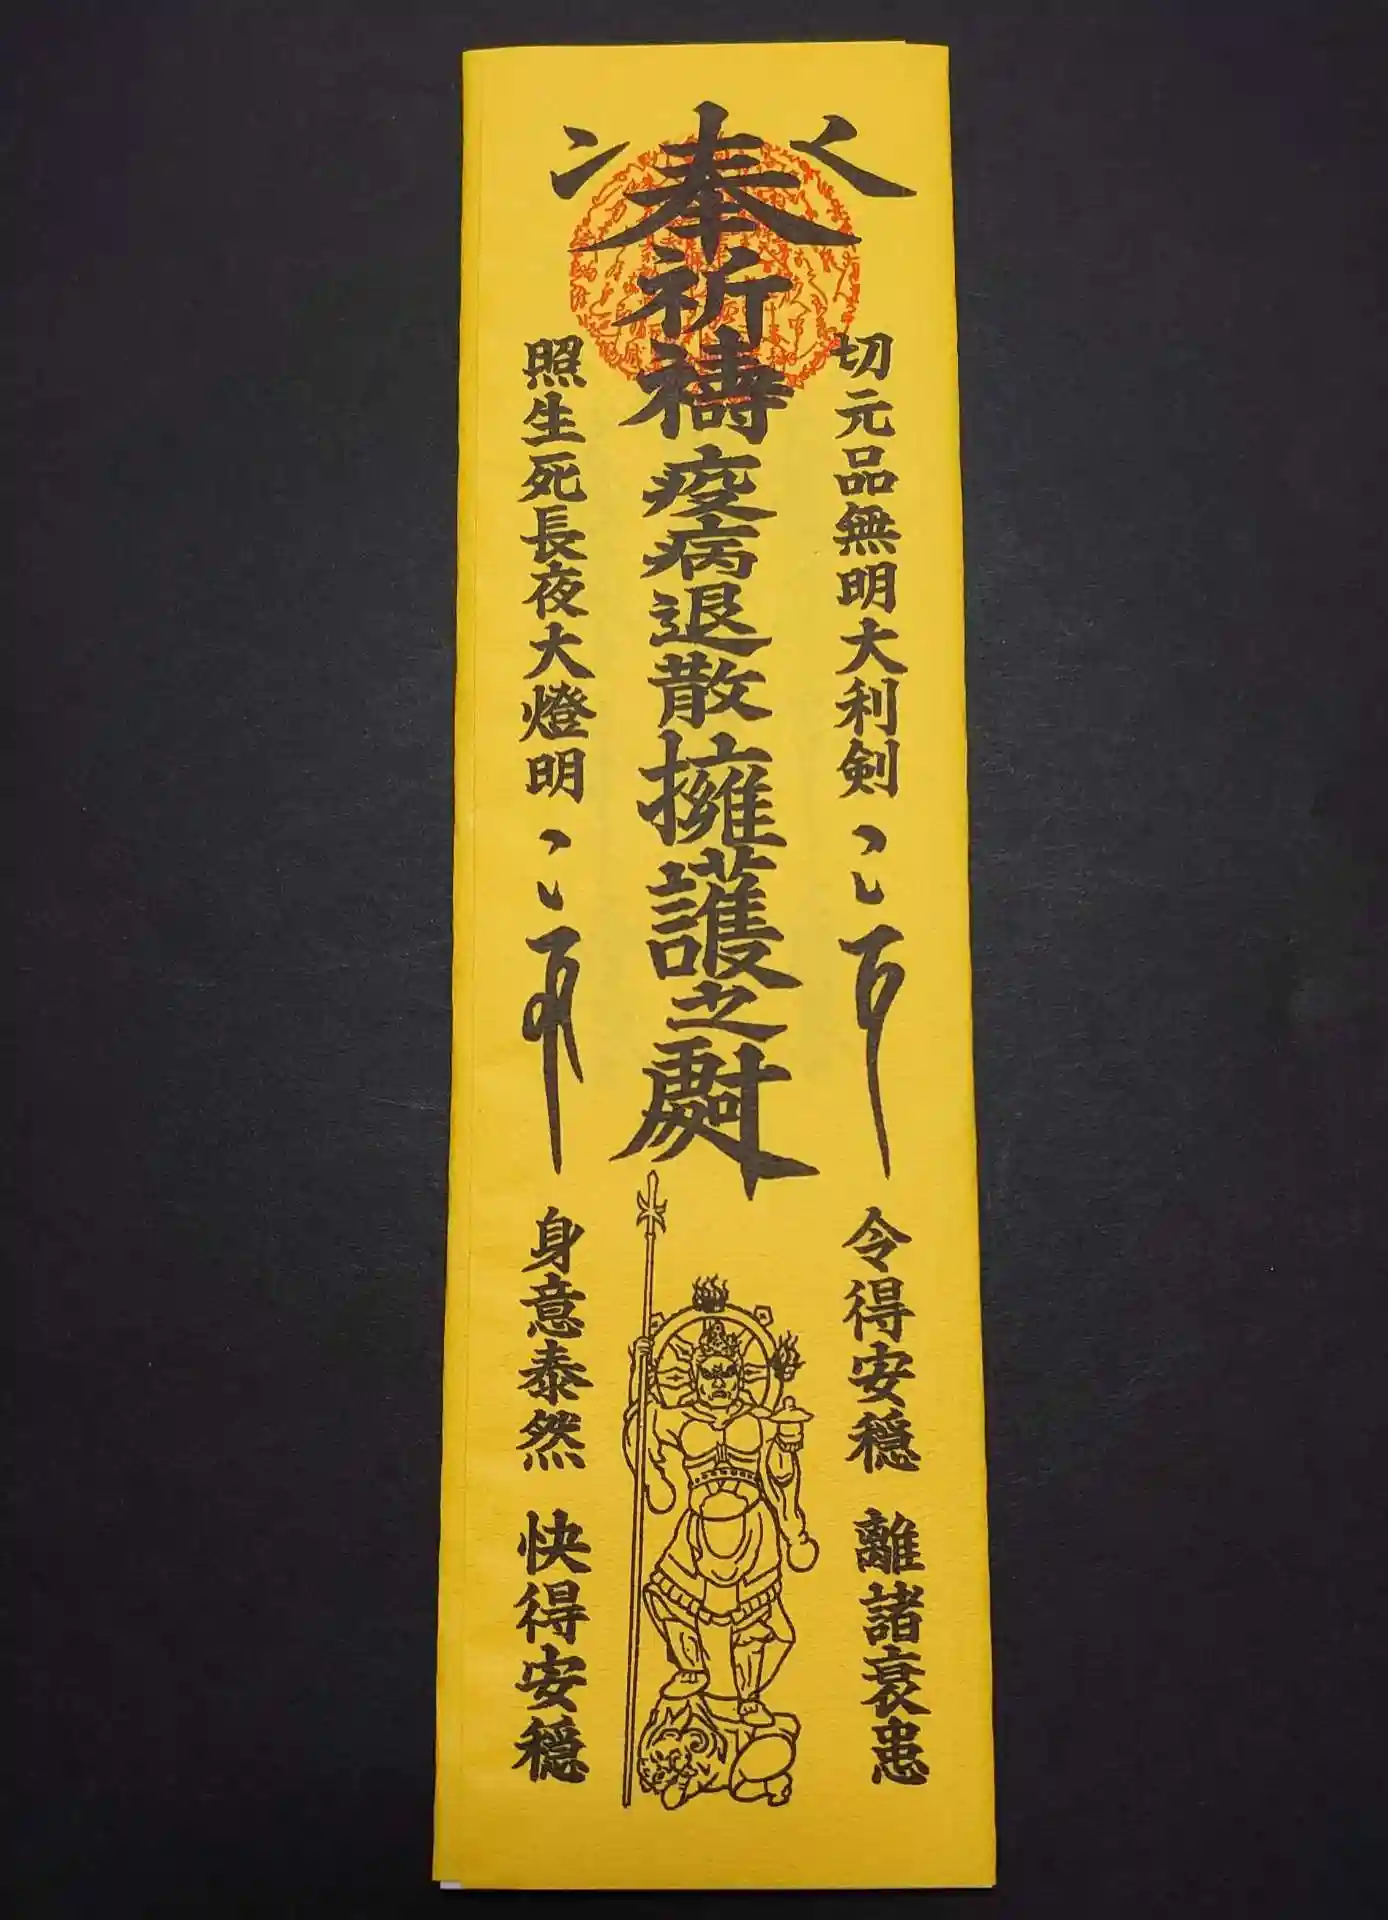 切元品無明大利剣
令得安穏
離諸衰患
奉祈禱疫病退散擁護之
照生死長夜大燈明
身意泰然
快得安穏